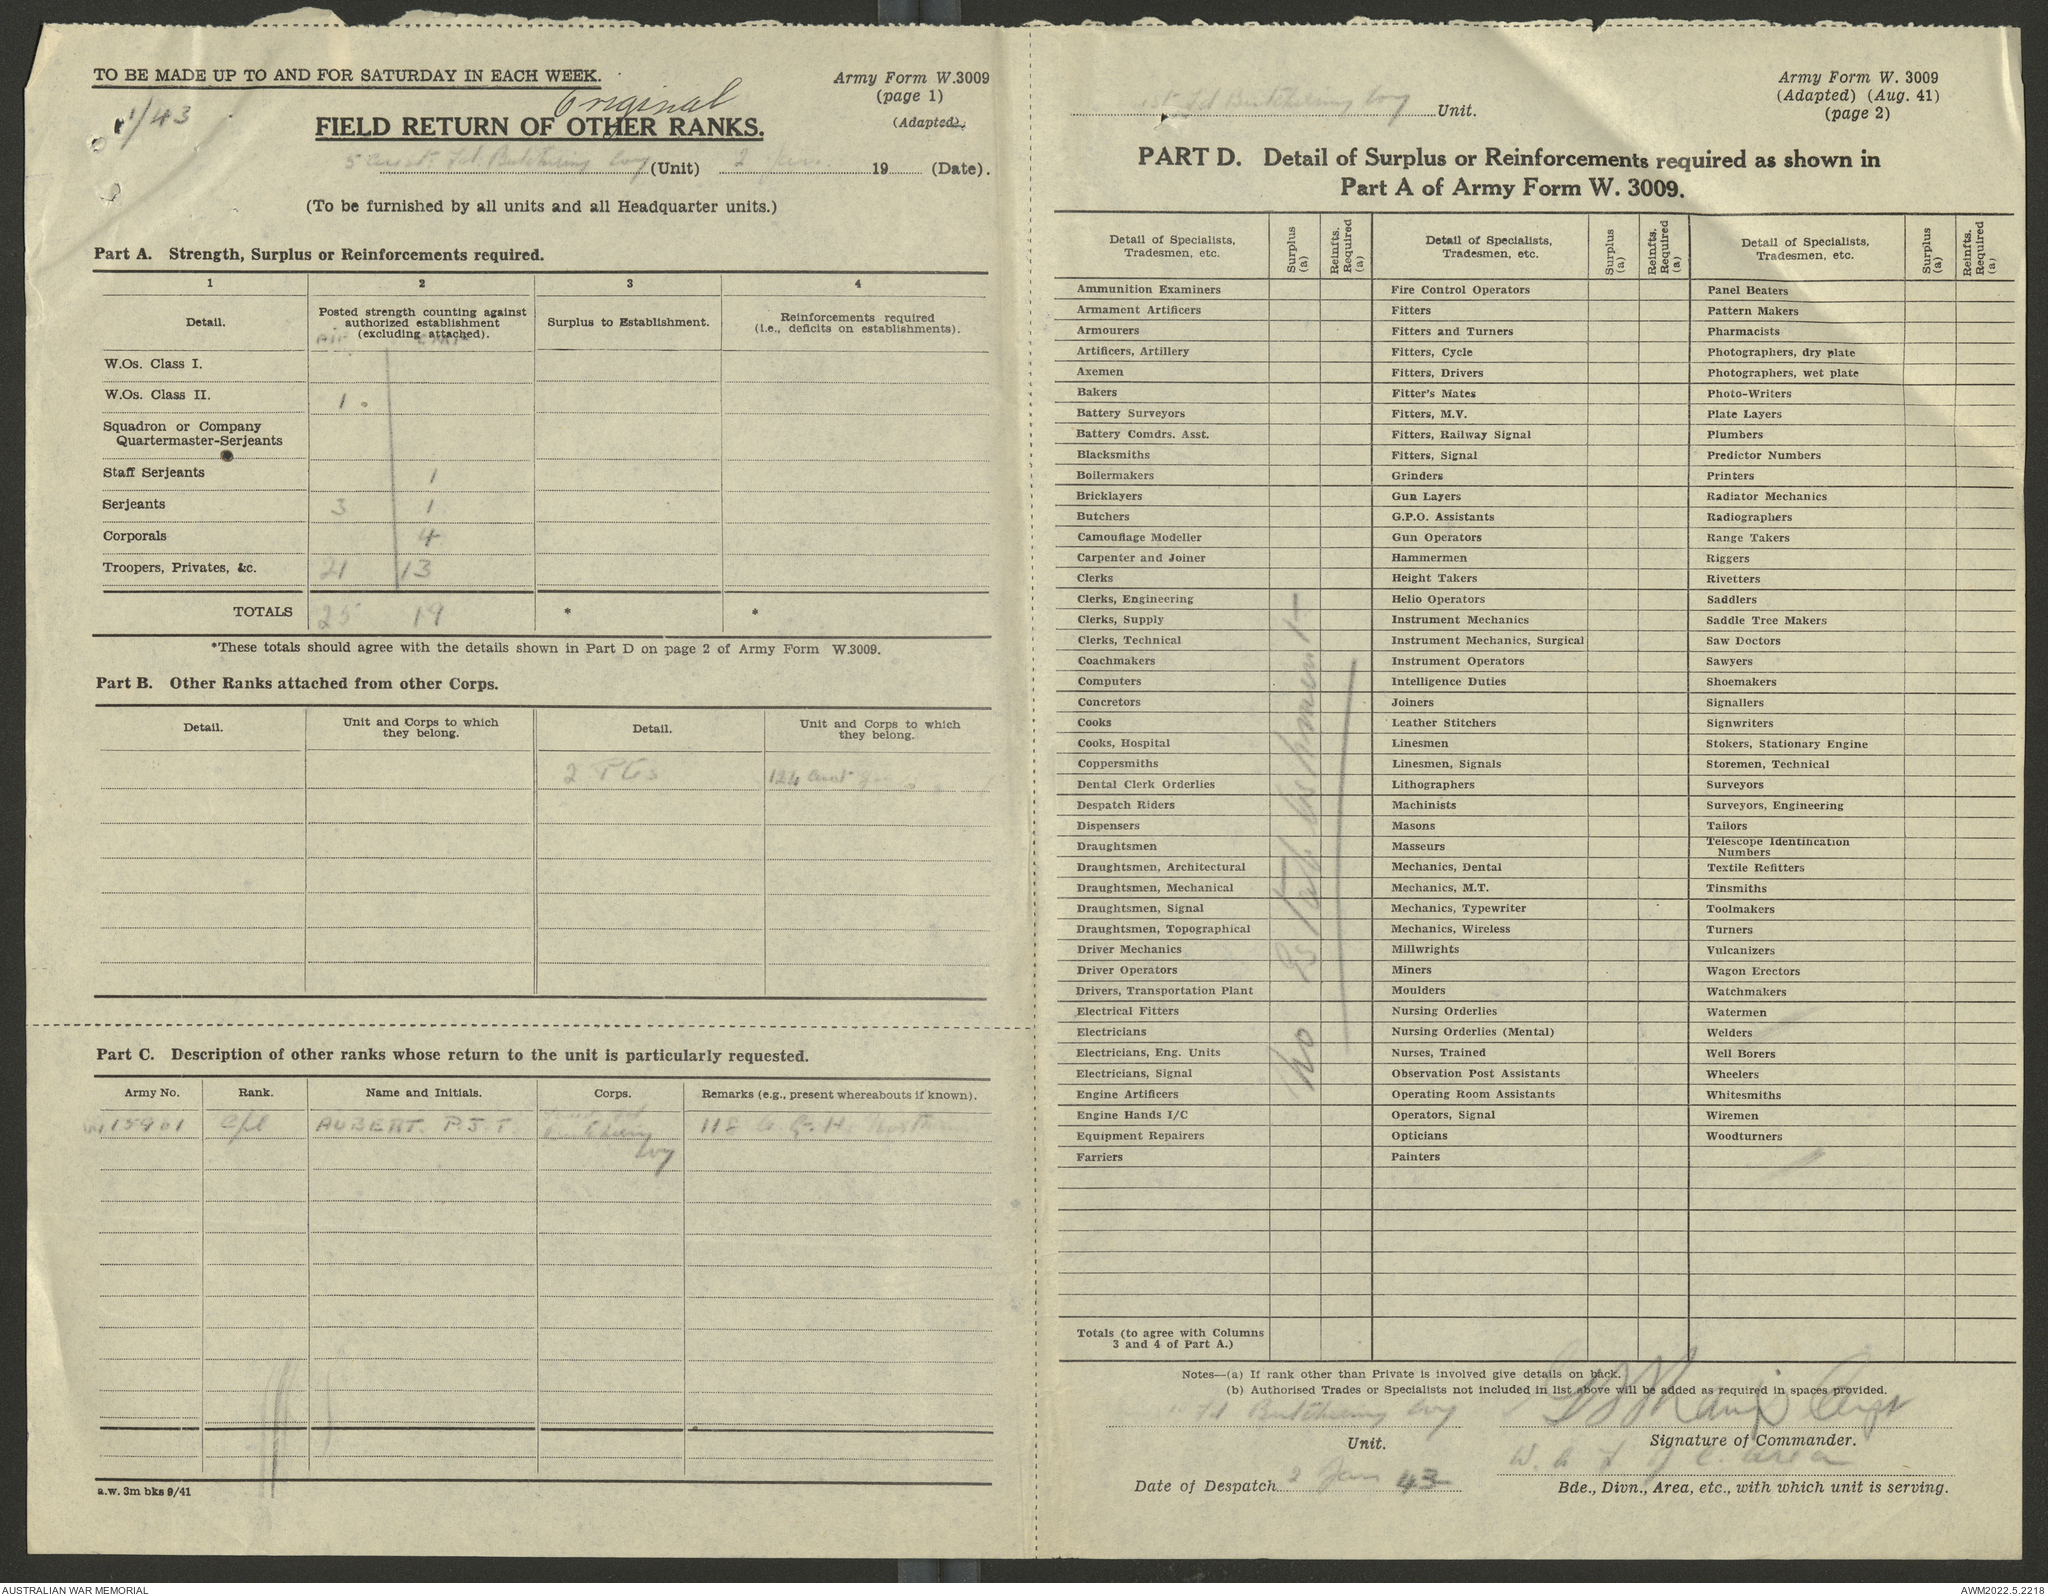 TO BE MADE UP TO AND FOR SATURDAY IN EACH WEEK.
Army Form W.3009
(page 1)
(Adapted)
1/43
Original
FIELD RETURN OF OTHER RANKS.
Fd. Butchering Coy (Unit) 2 Jan. 19 (Date).
(To be furnished by all units and all Headquarter units.)
Part A. Strength, Surplus or Reinforcements required.
1 2 3 4
Detail.
Posted strength counting against authorized establishment (excluding attached).
Surplus to Establishment.
Reinforcements required (i.e., deficits on establishments).
AIF
W.Os. Class I.
W.Os. Class II. 1
Squadron or Company Quartermaster-Serjeants
Staff Serjeants 1
Serjeants 3 1
Corporals 4
Troopers, Privates, &c. 21 13
TOTALS 25 19 * *
*These totals should agree with the details shown in Part D on page 2 of Army Form W.3009.
Part B. Other Ranks attached from other Corps.
Detail.
Unit and Corps to which they belong.
Detail.
Unit and Corps to which they belong.
2 Ptes 124 Aust
Part C. Description of other ranks whose return to the unit is particularly requested.
Army No. Rank. Name and Initials. Corps. Remarks (e.g., present whereabouts if known).
Cpl AUBERT. P.J.T. Butchering Coy 118 A.G.H.
a.w. 3m bks 9/41
Army Form W. 3009
(Adapted) (Aug. 41)
(page 2)
Fd Butchering Coy Unit.
PART D. Detail of Surplus or Reinforcements required as shown in
Part A of Army Form W. 3009.
Detail of Specialists, Tradesmen, etc.
Surplus (a)
Reinfts. Required (a)
Detail of Specialists, Tradesmen, etc.
Surplus (a)
Reinfts. Required (a)
Detail of Specialists, Tradesmen, etc.
Surplus (a)
Reinfts. Required (a)
Ammunition Examiners Fire Control Operators Panel Beaters
Armament Artificers Fitters Pattern Makers
Armourers Fitters and Turners Pharmacists
Artificers, Artillery Fitters, Cycle Photographers, dry plate
Axemen Fitters, Drivers Photographers, wet plate
Bakers Fitter's Mates Photo-Writers
Battery Surveyors Fitters, M.V. Plate Layers
Battery Comdrs. Asst. Fitters, Railway Signal Plumbers
Blacksmiths Fitters, Signal Predictor Numbers
Boilermakers Grinders Printers
Bricklayers Gun Layers Radiator Mechanics
Butchers G.P.O. Assistants Radiographers
Camouflage Modeller Gun Operators Range Takers
Carpenter and Joiner Hammermen Riggers
Clerks Height Takers Rivetters
Clerks, Engineering Helio Operators Saddlers
Clerks, Supply Instrument Mechanics Saddle Tree Makers
Clerks, Technical Instrument Mechanics, Surgical Saw Doctors
Coachmakers Instrument Operators Sawyers
Computers Intelligence Duties Shoemakers
Concretors Joiners Signallers
Cooks Leather Stitchers Signwriters
Cooks, Hospital Linesmen Stokers, Stationary Engine
Coppersmiths Linesmen, Signals Storemen, Technical
Dental Clerk Orderlies Lithographers Surveyors
Despatch Riders Machinists Surveyors, Engineering
Dispensers Masons Tailors
Draughtsmen Masseurs Telescope Identification Numbers
Draughtsmen, Architectural Mechanics, Dental Textile Refitters
Draughtsmen, Mechanical Mechanics, M.T. Tinsmiths
Draughtsmen, Signal Mechanics, Typewriter Toolmakers
Draughtsmen, Topographical Mechanics, Wireless Turners
Driver Mechanics Millwrights Vulcanizers
Driver Operators Miners Wagon Erectors
Drivers, Transportation Plant Moulders Watchmakers
Electrical Fitters Nursing Orderlies Watermen
Electricians Nursing Orderlies (Mental) Welders
Electricians, Eng. Units Nurses, Trained Well Borers
Electricians, Signal Observation Post Assistants Wheelers
Engine Artificers Operating Room Assistants Whitesmiths
Engine Hands I/C Operators, Signal Wiremen
Equipment Repairers Opticians Woodturners
Farriers Painters
No Establishment
Totals (to agree with Columns 3 and 4 of Part A.)
Notes—(a) If rank other than Private is involved give details on back.
(b) Authorised Trades or Specialists not included in list above will be added as required in spaces provided.
Fd Butchering Coy
Unit.
Capt
Signature of Commander.
Date of Despatch 2 Jan 43
W. A. L of C. area
Bde., Divn., Area, etc., with which unit is serving.
AUSTRALIAN WAR MEMORIAL
AWM2022.5.2218